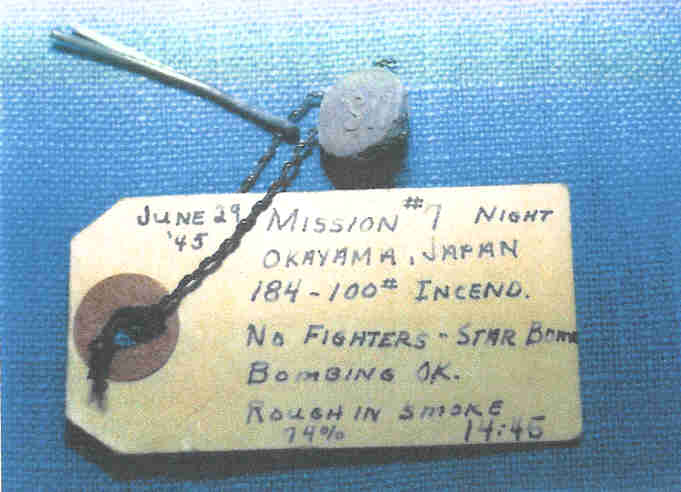 JUNE 29 MISSION #7 NIGHT
'45
OKAYAMA, JAPAN
184-100# INCEND.
NO FIGHTERS - STAR BOMB
BOMBING OK.
ROUGH IN SMOKE
74% 14:45